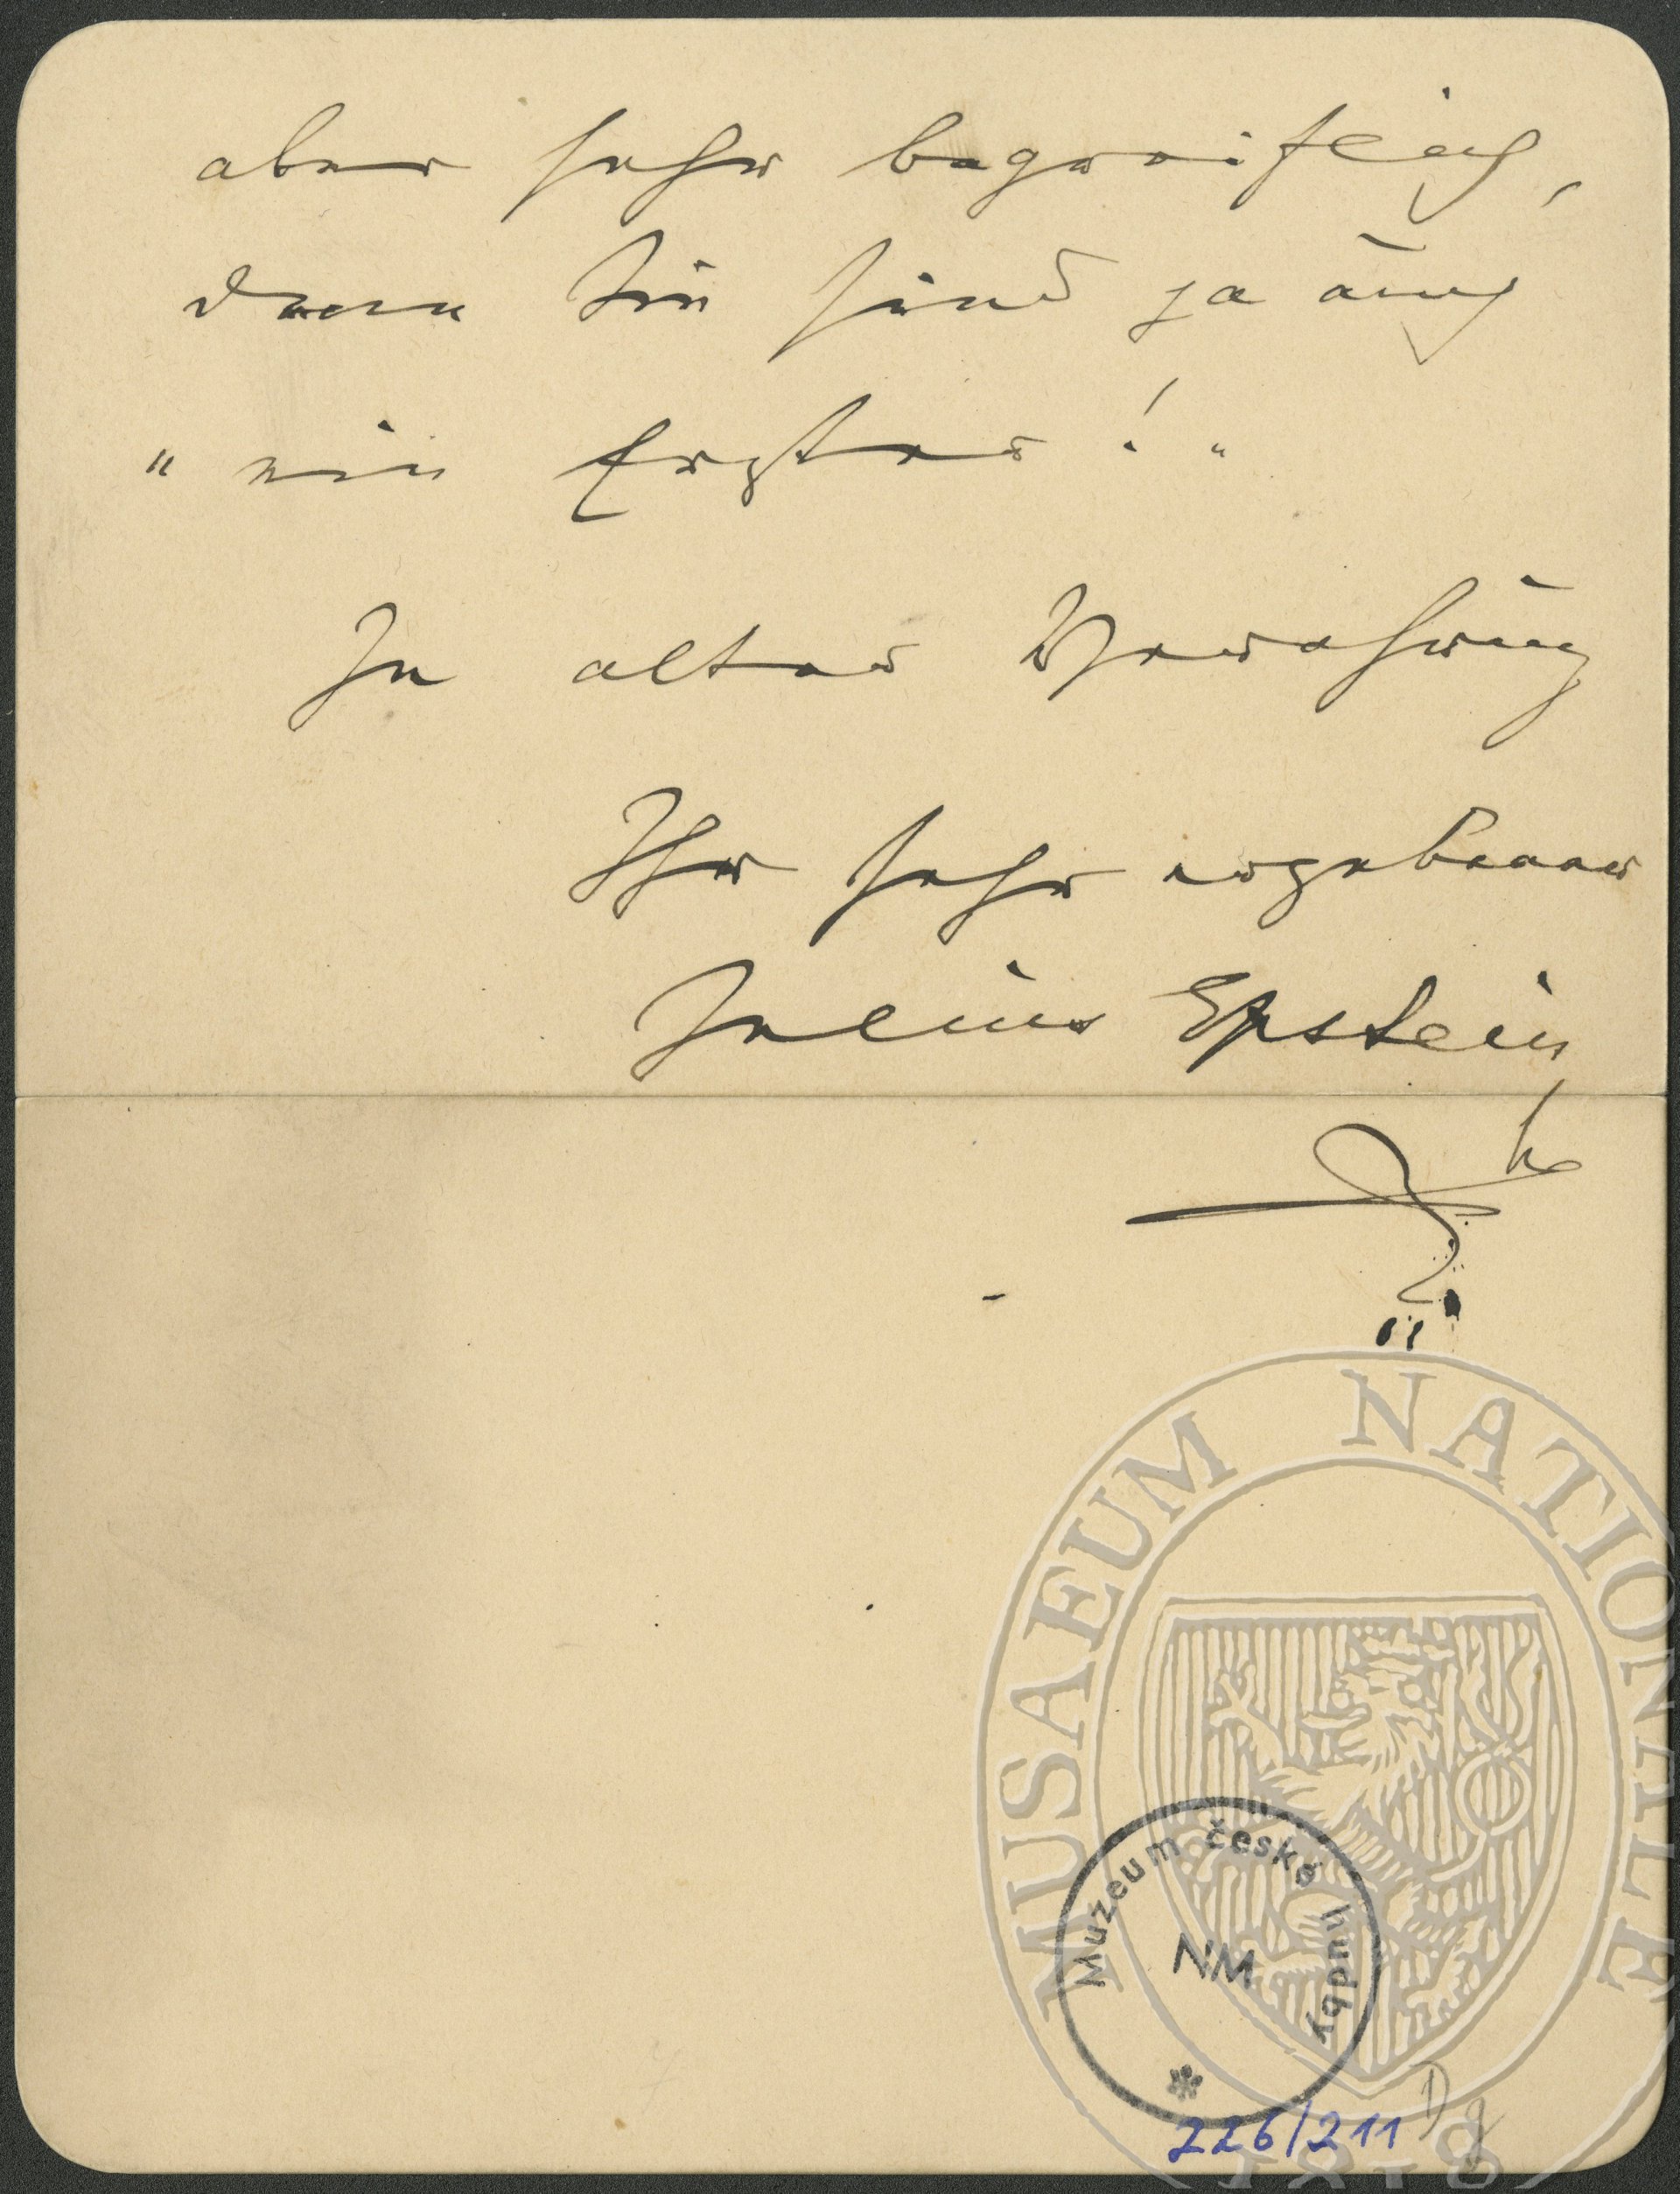 aber sehr begreiflich,
denn Sie sind ja auch
"ein Erster!"
In alter Verehrung
Ihr sehr ergebener
Julius Epstein
MUSAEUM NATIONALE
Muzeum české hudby
NM
226/211
Dg
1818